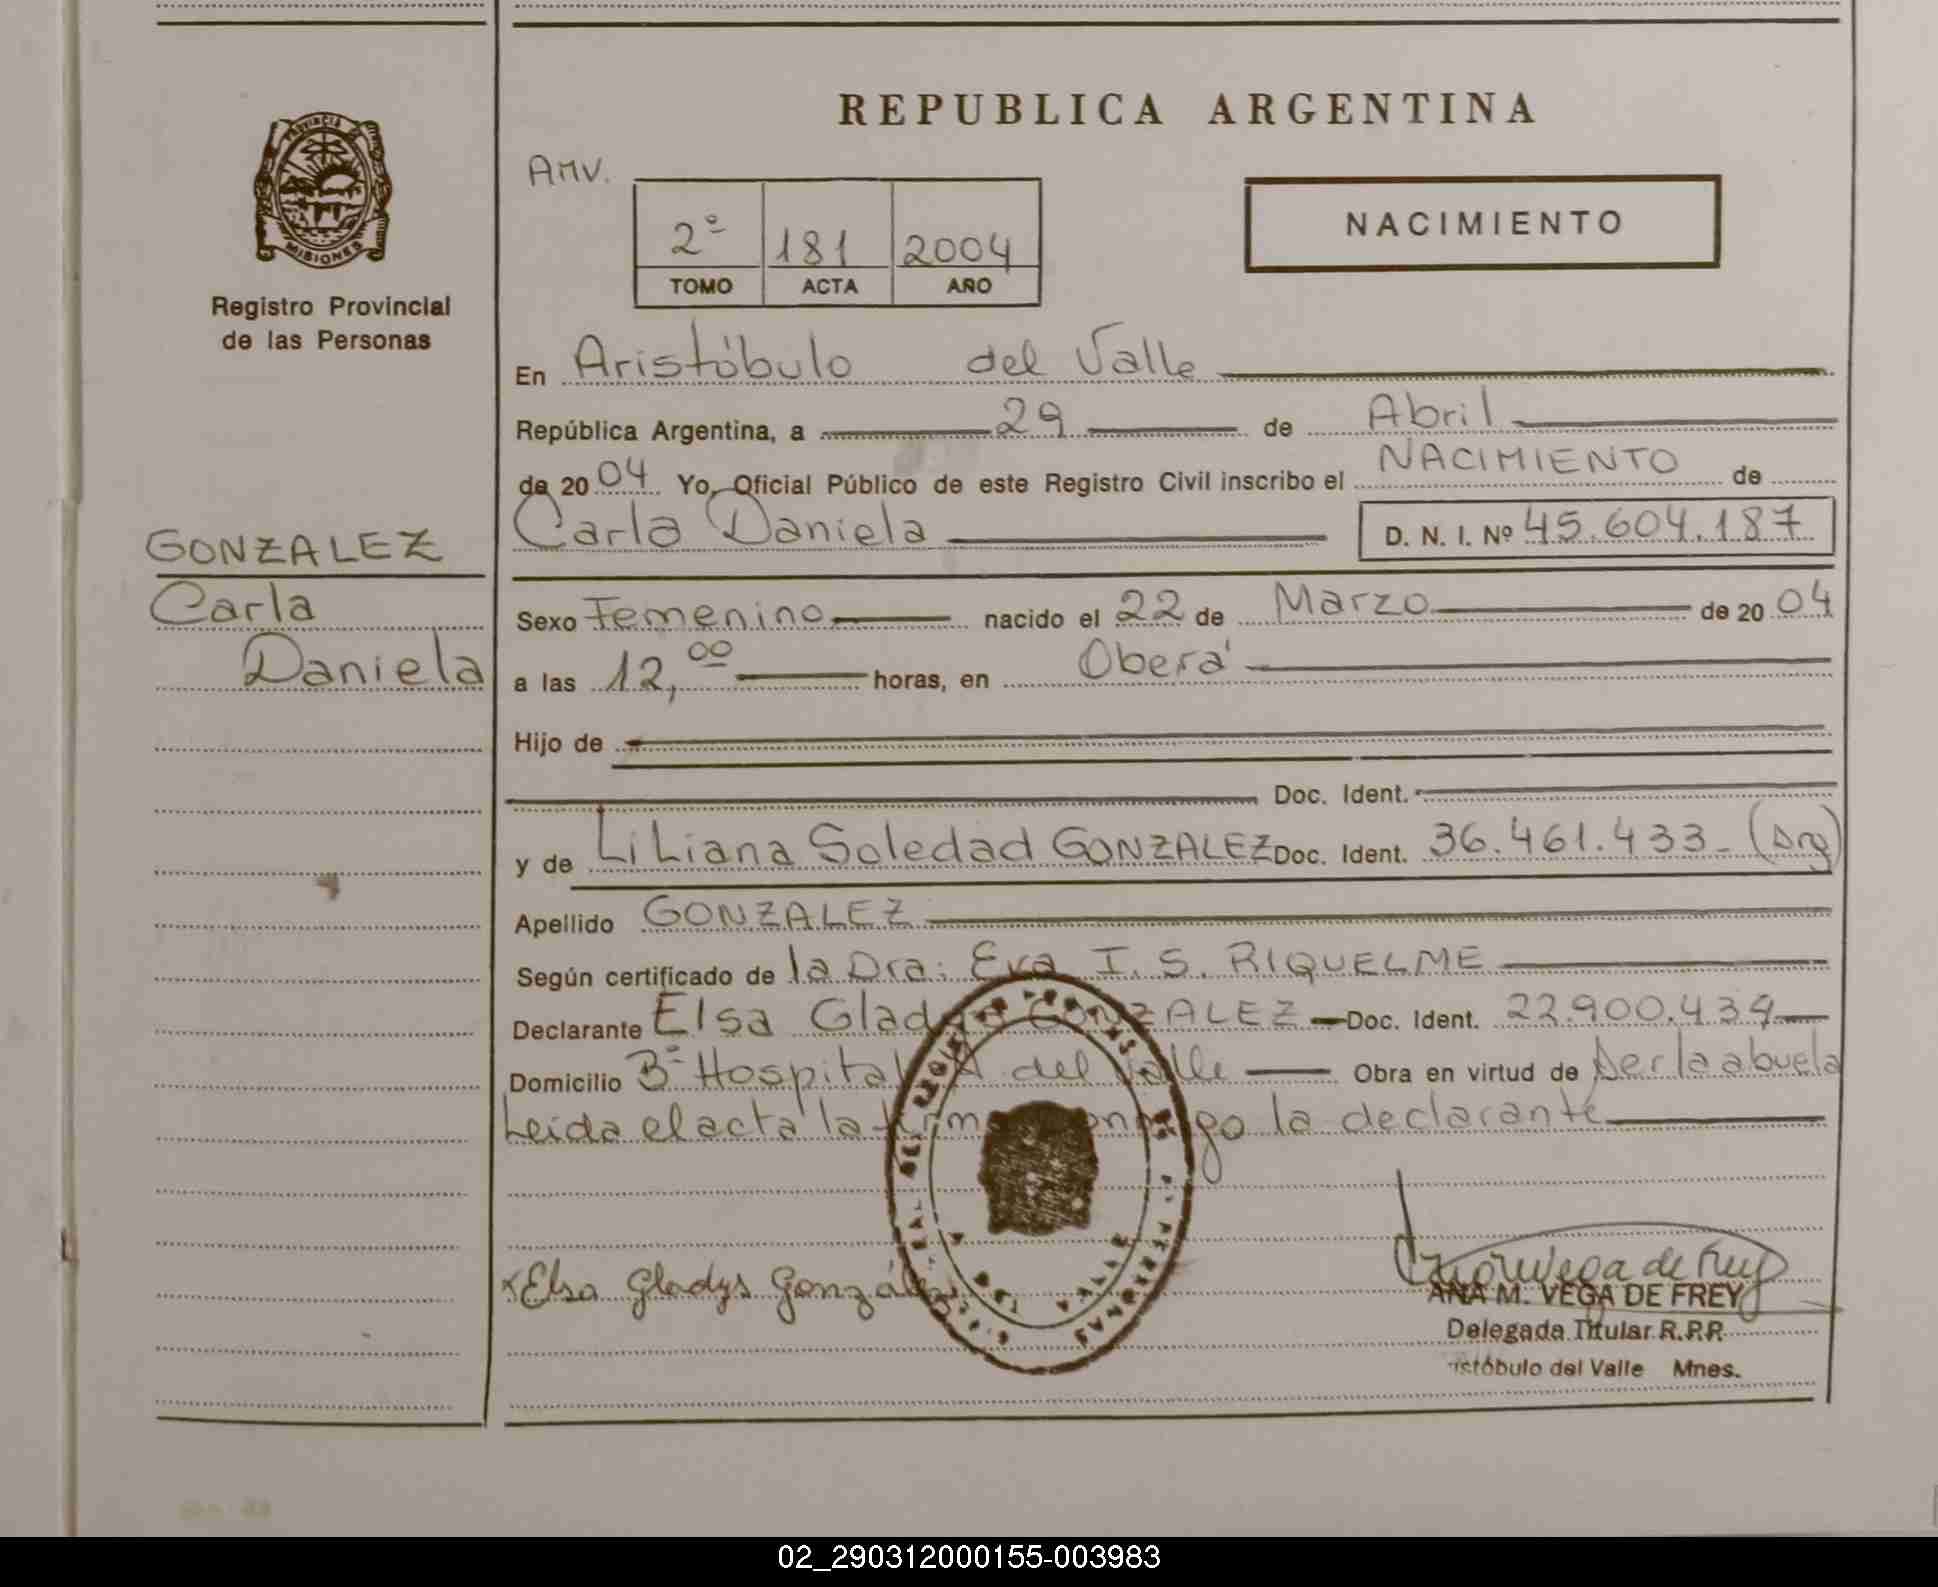 REPUBLICA ARGENTINA
PROVINCIA DE
MISIONES
Registro Provincial
de las Personas
AMV.
2º 181 2004
TOMO ACTA AÑO
NACIMIENTO
En Aristóbulo del Valle
República Argentina, a 29 de Abril
de 2004 Yo, Oficial Público de este Registro Civil inscribo el NACIMIENTO de
Carla Daniela D. N. I. Nº 45.604.187
GONZALEZ
Carla
Daniela
Sexo Femenino nacido el 22 de Marzo de 2004
a las 12,00 horas, en Oberá
Hijo de
Doc. Ident.
y de Liliana Soledad GONZALEZ Doc. Ident. 36.461.433_ (Arg)
Apellido GONZALEZ
Según certificado de la Dra: Eva I. S. RIQUELME
Declarante Elsa Gladys GONZALEZ Doc. Ident. 22.900.439
Domicilio Bº Hospital A del Valle Obra en virtud de Ser la abuela
Leida el acta la firma conmigo la declarante
x Elsa Gladys González
Ana M Vega de Frey
ANA M. VEGA DE FREY
Delegada Titular R.P.P.
istóbulo del Valle Mnes.
02_290312000155-003983